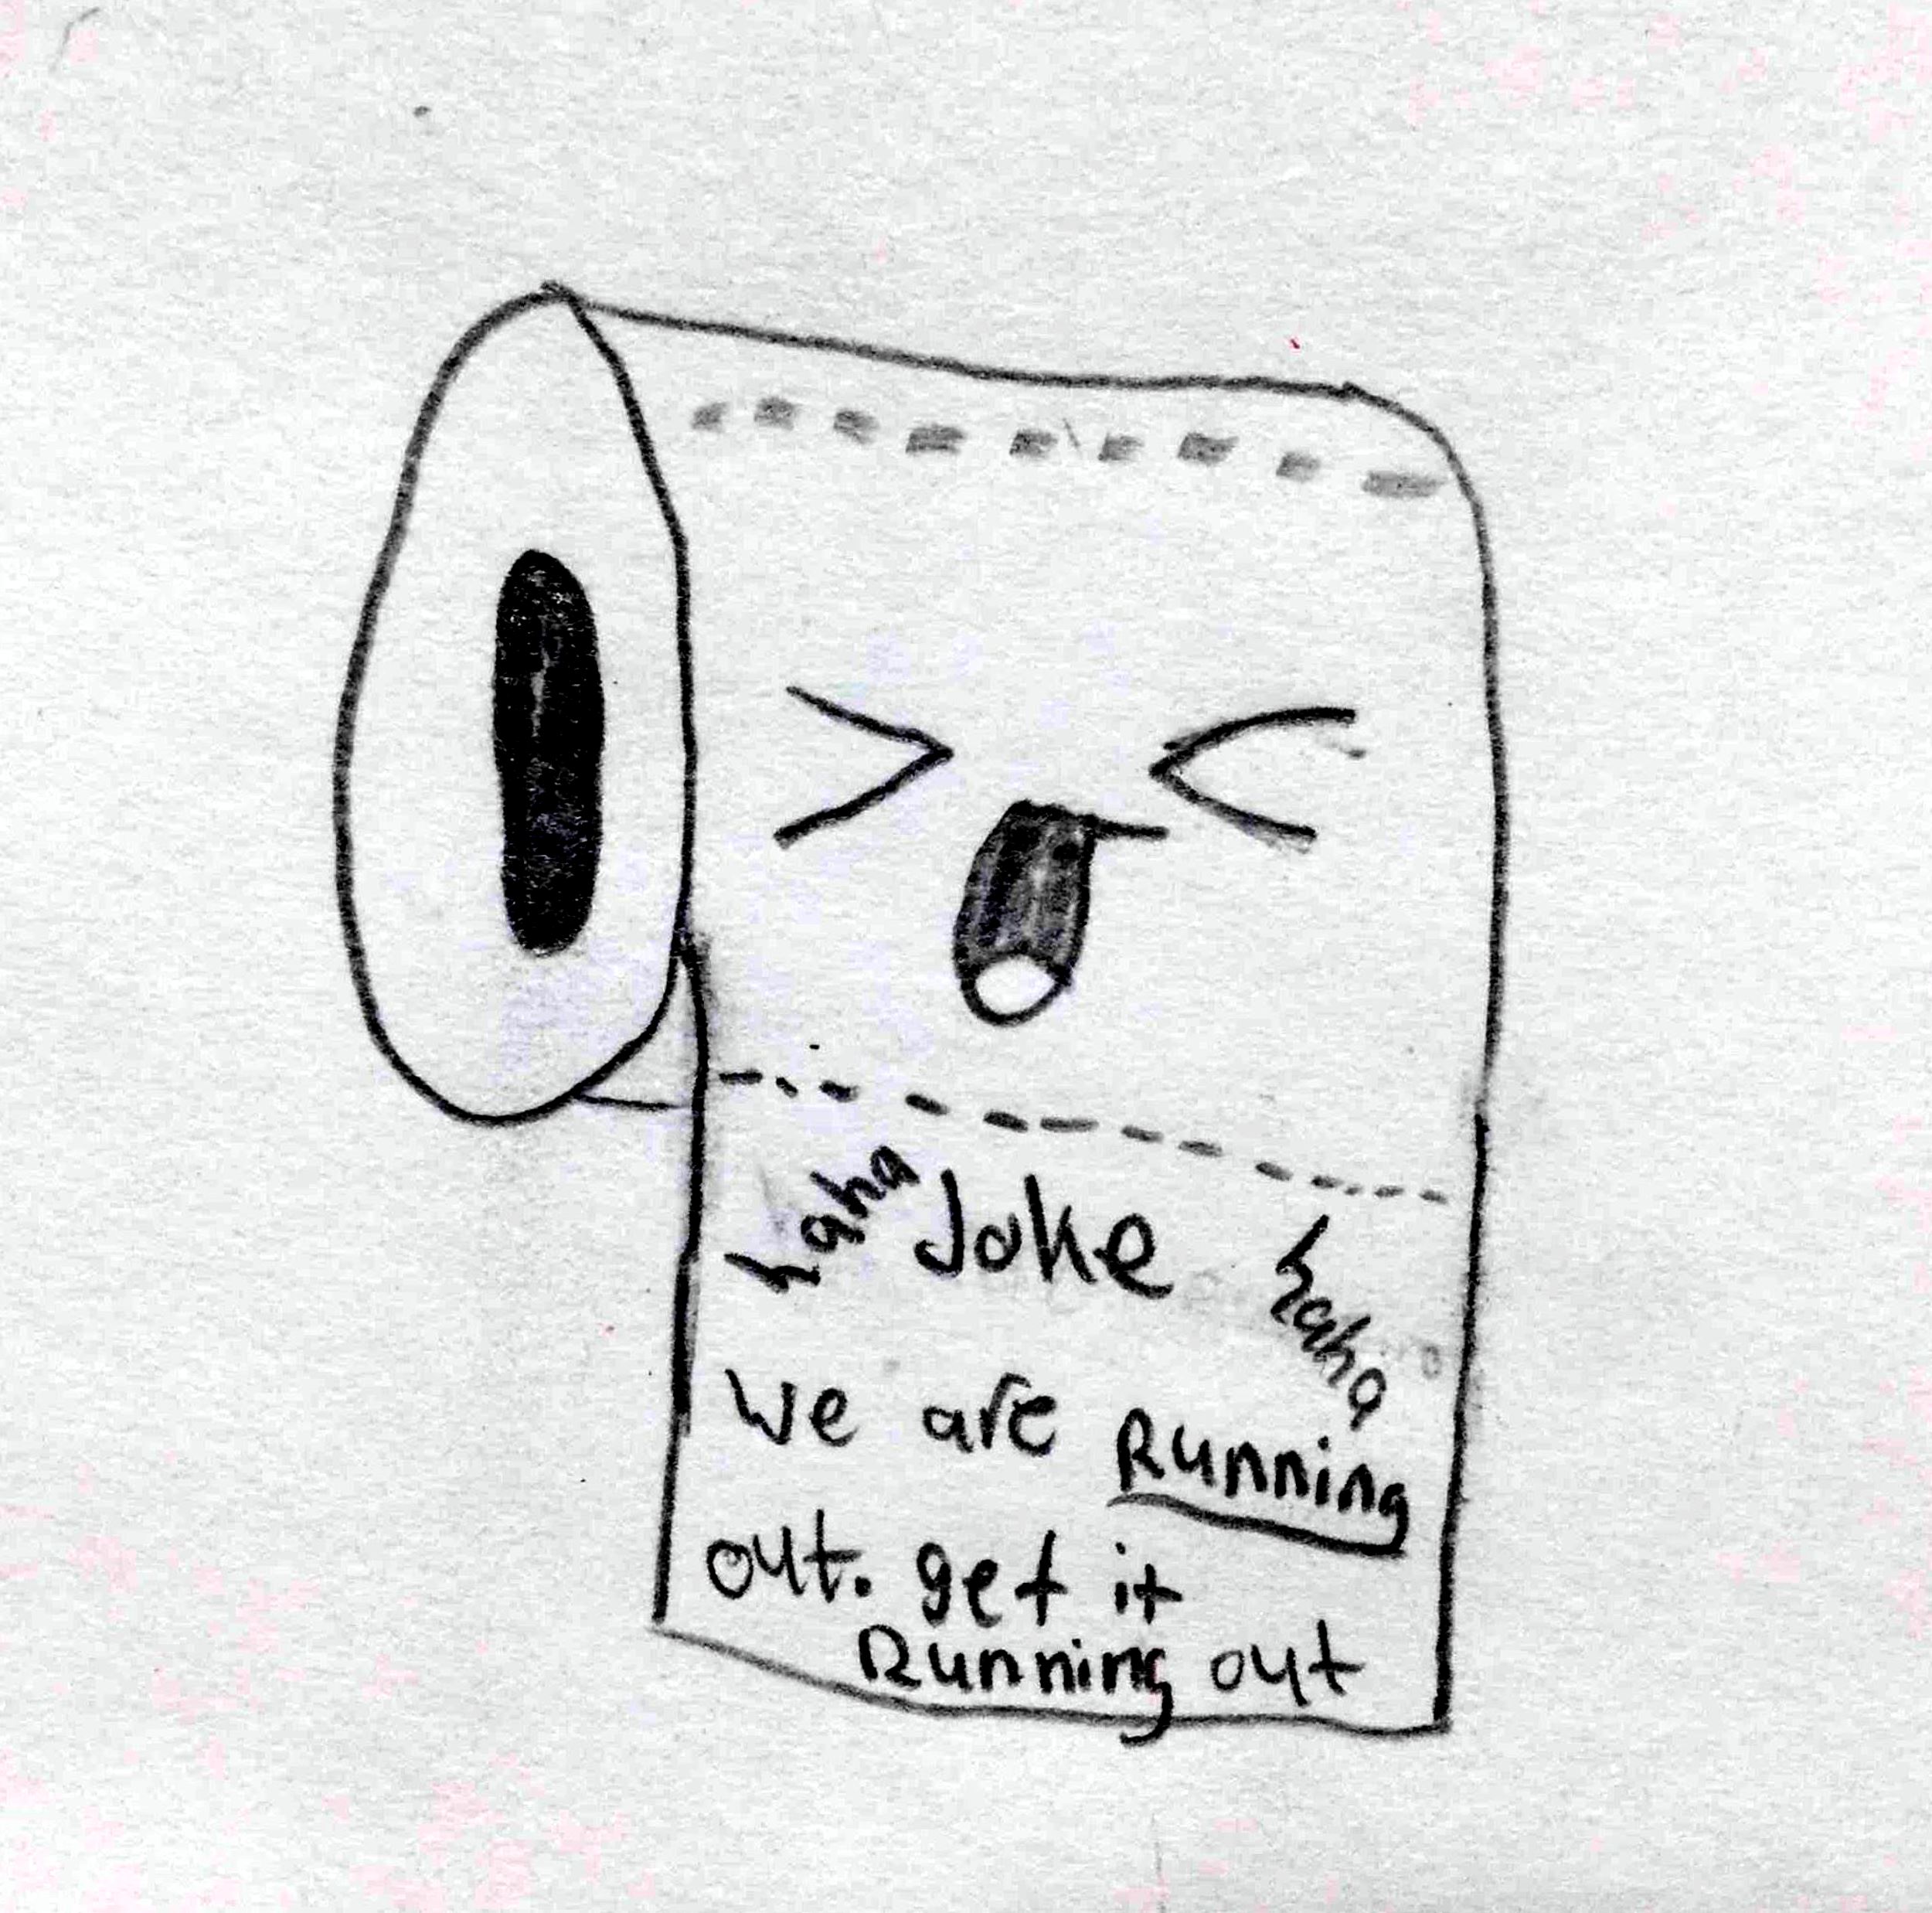 haha Joke haha
We are Running
out. get it
Running out